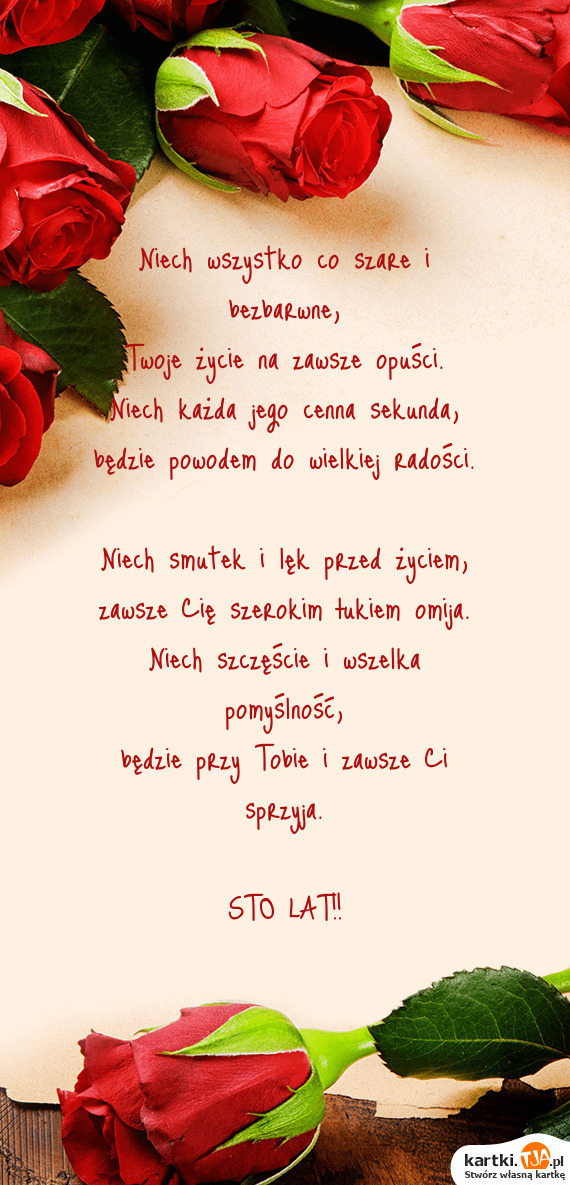 Niech wszystko co szare i
bezbarwne,
Twoje życie na zawsze opuści.
Niech każda jego cenna sekunda,
będzie powodem do wielkiej radości.
Niech smutek i lęk przed życiem,
zawsze Cię szerokim łukiem omija.
Niech szczęście i wszelka
pomyślność,
będzie przy Tobie i zawsze Ci
sprzyja.
STO LAT!!
kartki.TJA.pl
Stwórz własną kartkę